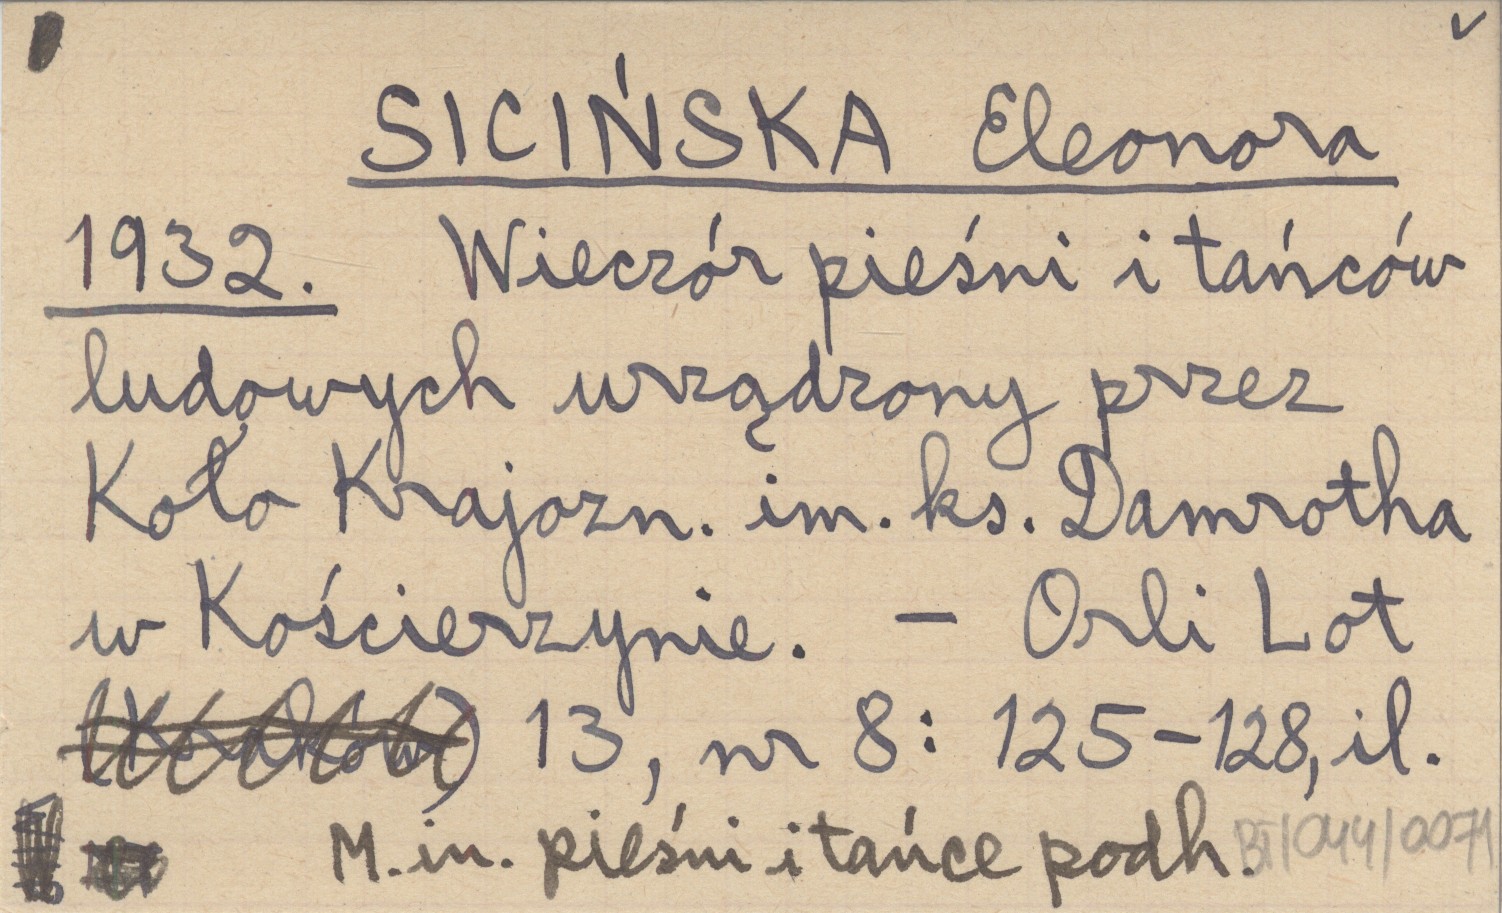 SICIŃSKA Eleonora
1932. Wieczór pieśni i tańców
ludowych urządzony przez
Koło Krajozn. im. ks. Damrotha
w Kościerzynie. – Orli Lot
(Kraków) 13, nr 8: 125–128, il.
M. in. pieśni i tańce podh. BT/044/0071